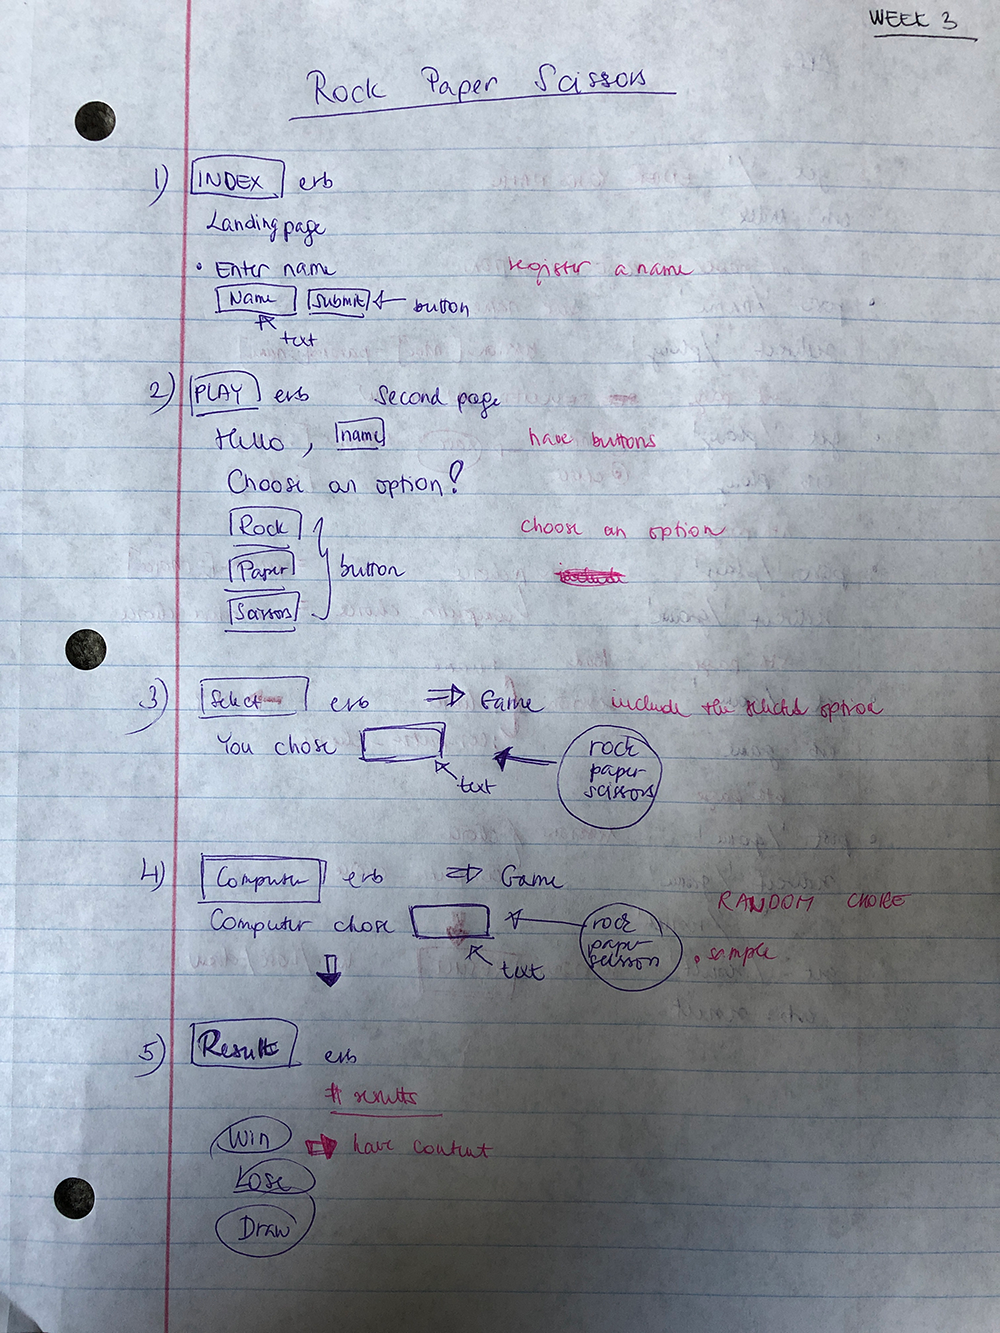 WEEK 3
Rock Paper Scissors
1) INDEX erb
Landing page
• Enter name register a name
Name Submit button
text
2) PLAY erb Second page
Hello, name have buttons
Choose an option!
Rock choose an option
Paper button
Scissors
3) Select erb ⇒ Game include the selected option
You chose rock
text paper
scissors
4) Computer erb ⇒ Game
RANDOM CHOICE
Computer chose rock
paper
text scissors .sample
5) Results erb
# results
Win have content
Lose
Draw